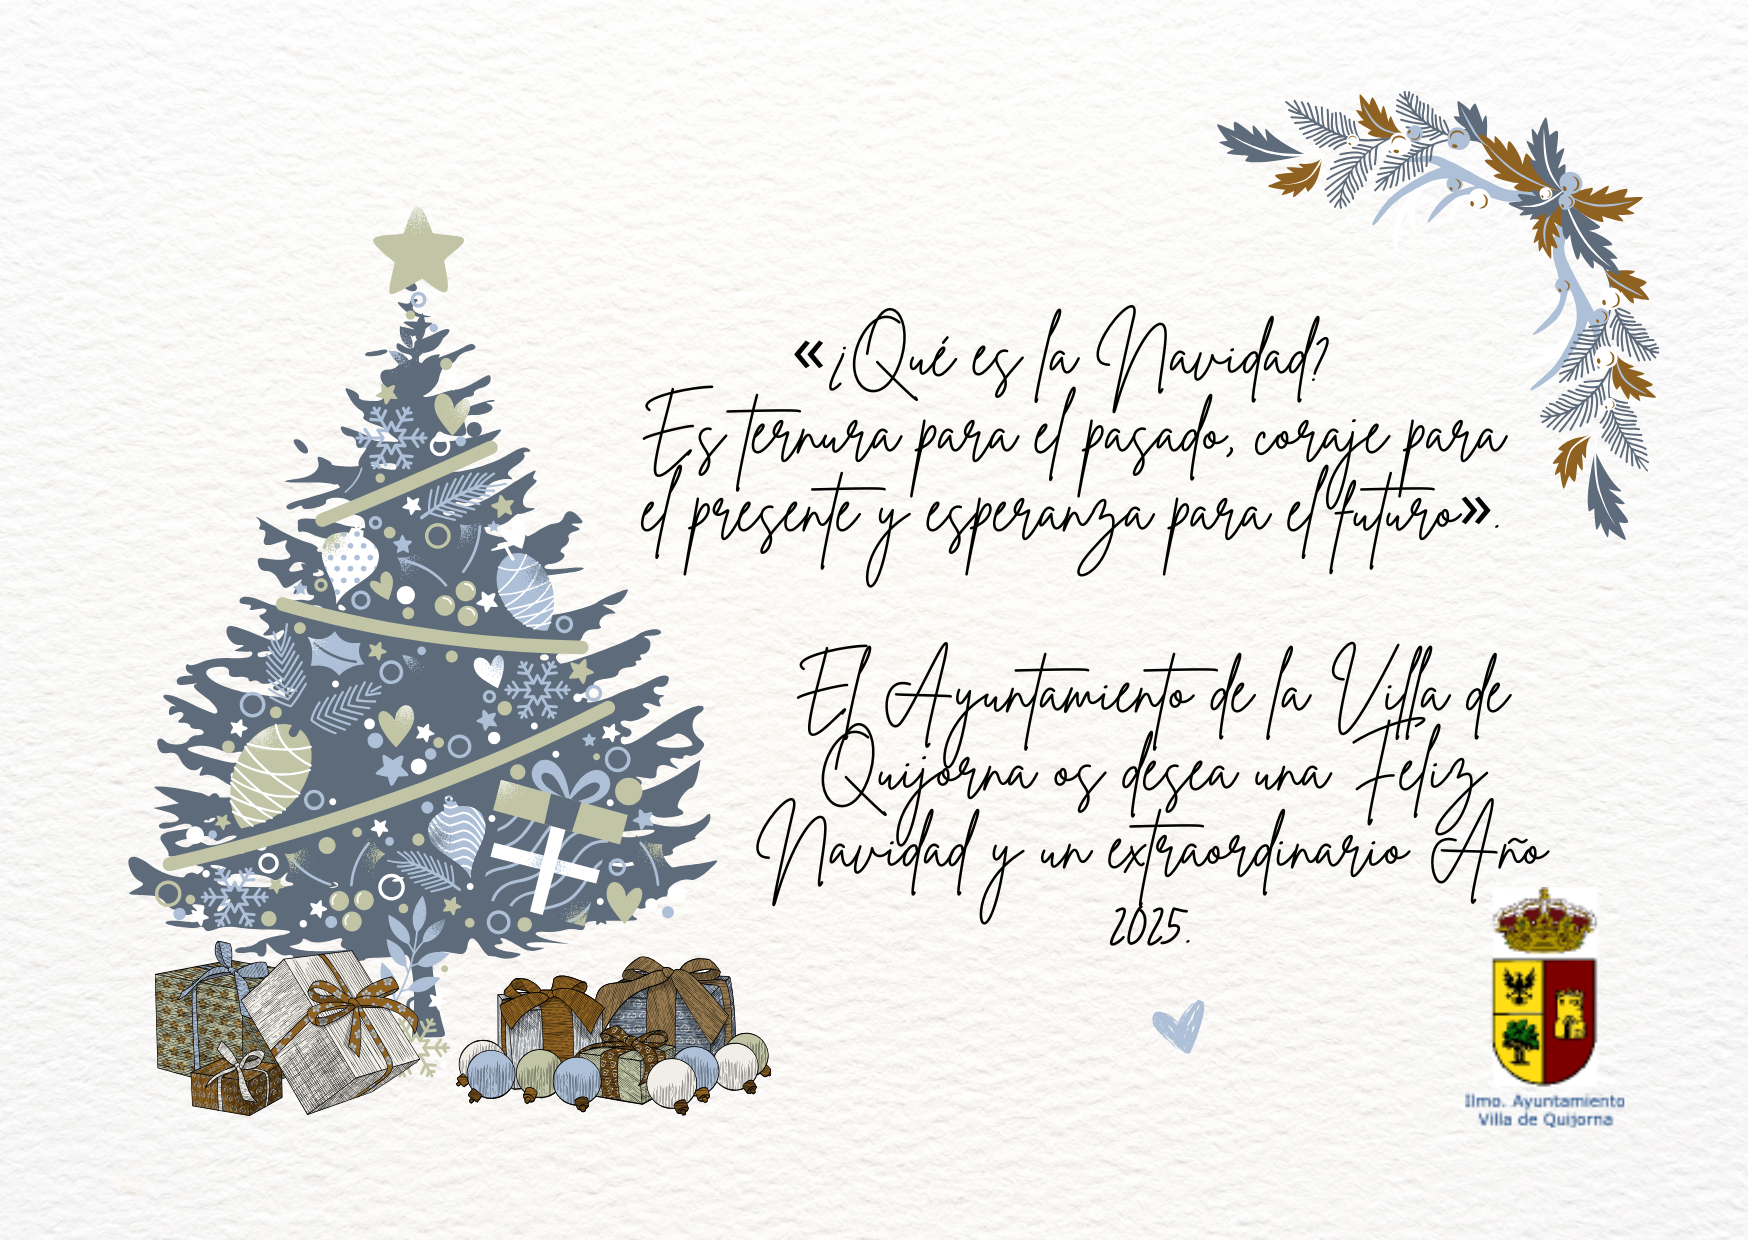 «¿Qué es la Navidad?
Es ternura para el pasado, coraje para
el presente y esperanza para el futuro».
El Ayuntamiento de la Villa de
Quijorna os desea una Feliz
Navidad y un extraordinario Año
2025.
Ilmo. Ayuntamiento
Villa de Quijorna